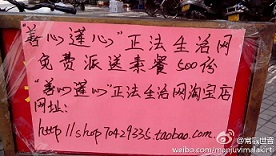 "善心莲心"正法生活网
免费派送素餐500份
"善心莲心"正法生活网淘宝店
网址:
http://shop70429335.taobao.com
@常臨世音
weibo.com/manjuvimalakirti